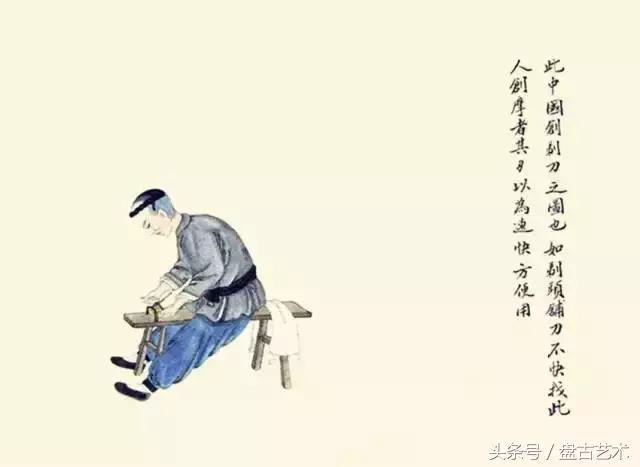 此中國創剃刀之圖也如剃頭鋪刀不快找此
人創摩者其刀以為速快方便用
头条号／盘古艺术